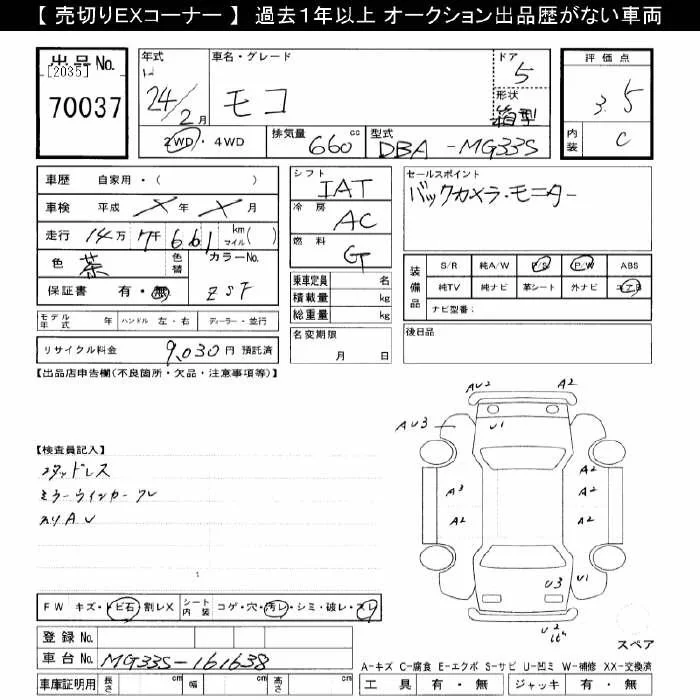 【 売切りEXコーナー 】 過去1年以上 オークション出品歴がない車両
出品No.
[2035]
70037
年式
H
24/2月
車名・グレード
モコ
ドア
5
形状
箱型
2WD・4WD
排気量
660 cc
型式
DBA-MG33S
評価点
3.5
内装
C
車歴 自家用・( )
車検 平成 X 年 X 月
走行 14万 7千 6 6 1 km マイル( )
色 茶
色替
カラーNo.
ZSF
保証書 有・無
モデル年式 年 ハンドル 左・右 ディーラー・並行
リサイクル料金 9,030 円 預託済
シフト
IAT
冷房
AC
燃料
G
乗車定員 名
積載量 kg
総重量 kg
名変期限
月 日
セールスポイント
バックカメラ・モニター
装備品
S/R 純A/W P/S P/W ABS
純TV 純ナビ 革シート 外ナビ エアB
ナビ型番:
後日品
【出品店申告欄(不良箇所・欠品・注意事項等)】
【検査員記入】
スタッドレス
ミラーウインカーワレ
スリAU
FW キズ・トビ石・割レX シート内装 コゲ・穴・汚レ・シミ・破レ・スレ
登録No.
車台No. MG33S-161638
車庫証明用 長さ cm 幅 cm 高さ cm
AU2
A2
AU3
U1
A3
A2
A2
A2
U3
U1
U2
スペア
A-キズ C-腐食 E-エクボ S-サビ U-凹ミ W-補修 XX-交換済
工具 有・無 ジャッキ 有・無